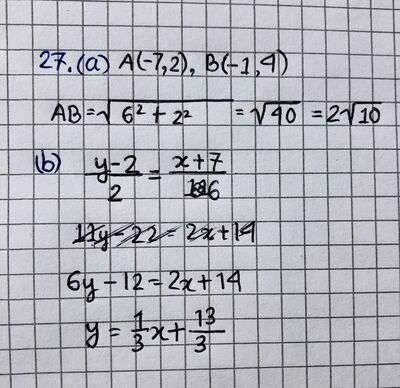 27.(a) A(-7,2), B(-1,4)
AB = √(6² + 2²) = √40 = 2√10
(b) (y-2)/2 = (x+7)/6
11y - 22 = 2x+14
6y - 12 = 2x+14
y = 1/3 x + 13/3